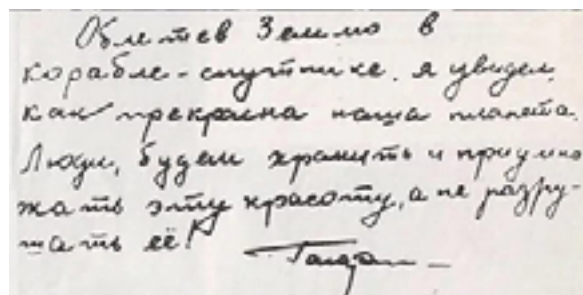 Облетев Землю в
корабле-спутнике, я увидел,
как прекрасна наша планета.
Люди, будем хранить и приумно
жать эту красоту, а не разру-
шать её!
Гагарин